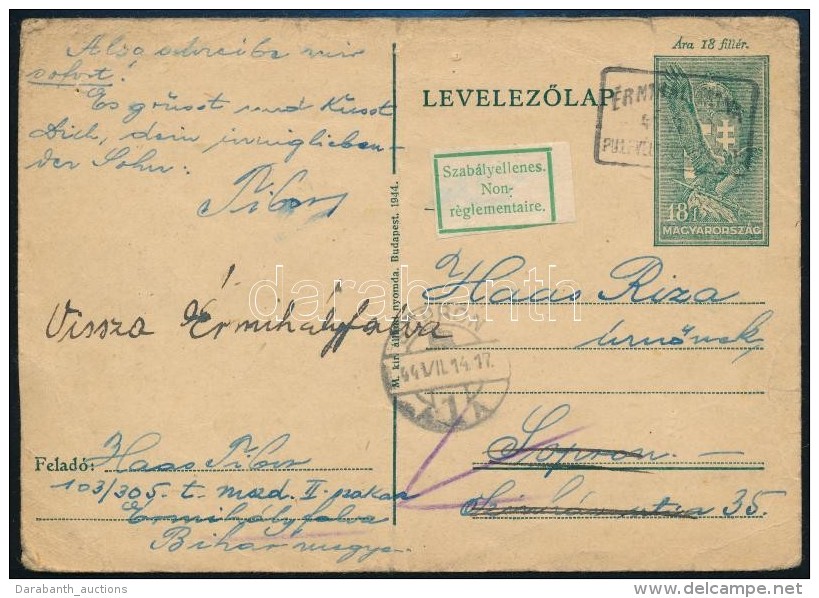 Also schreibe mir
sofort!
Es grüsst und Küsst
Dich, dein inniglieben-
der Sohn:
Tibor
Vissza Érmihályfalva
Feladó: Haas Tibor
103/305. t. mszd. II. szakasz
Érmihályfalva
Bihar megye.
M. kir. állami nyomda. Budapest. 1944.
Ára 18 fillér.
LEVELEZŐLAP
18f
MAGYARORSZÁG
Szabályellenes.
Non-
règlementaire.
Haas Riza
úrnőnek
Sopron. —
35.
SOPRON
44 VII. 14. 17
darabanth
Darabanth_auctions
delcampe.net